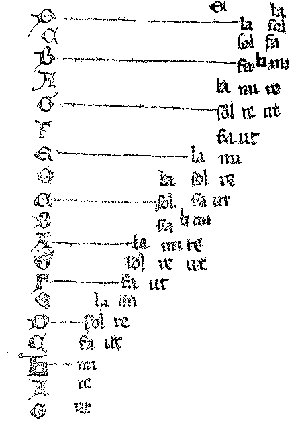 E la
D la sol
C sol fa
B fa b mi
A la mi re
G sol re ut
F fa ut
E la mi
D la sol re
C sol fa ut
B fa b mi
A la mi re
G sol re ut
F fa ut
E la mi
D sol re
C fa ut
B mi
A re
G ut